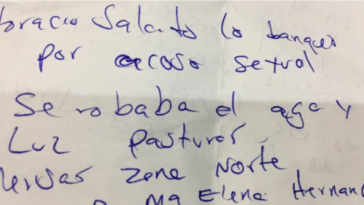 oracio Salcito lo banqueo
por acoso sexual
Se robaba el aga y
Luz pasturas
versas zona Norte
Ma Elena Hernan